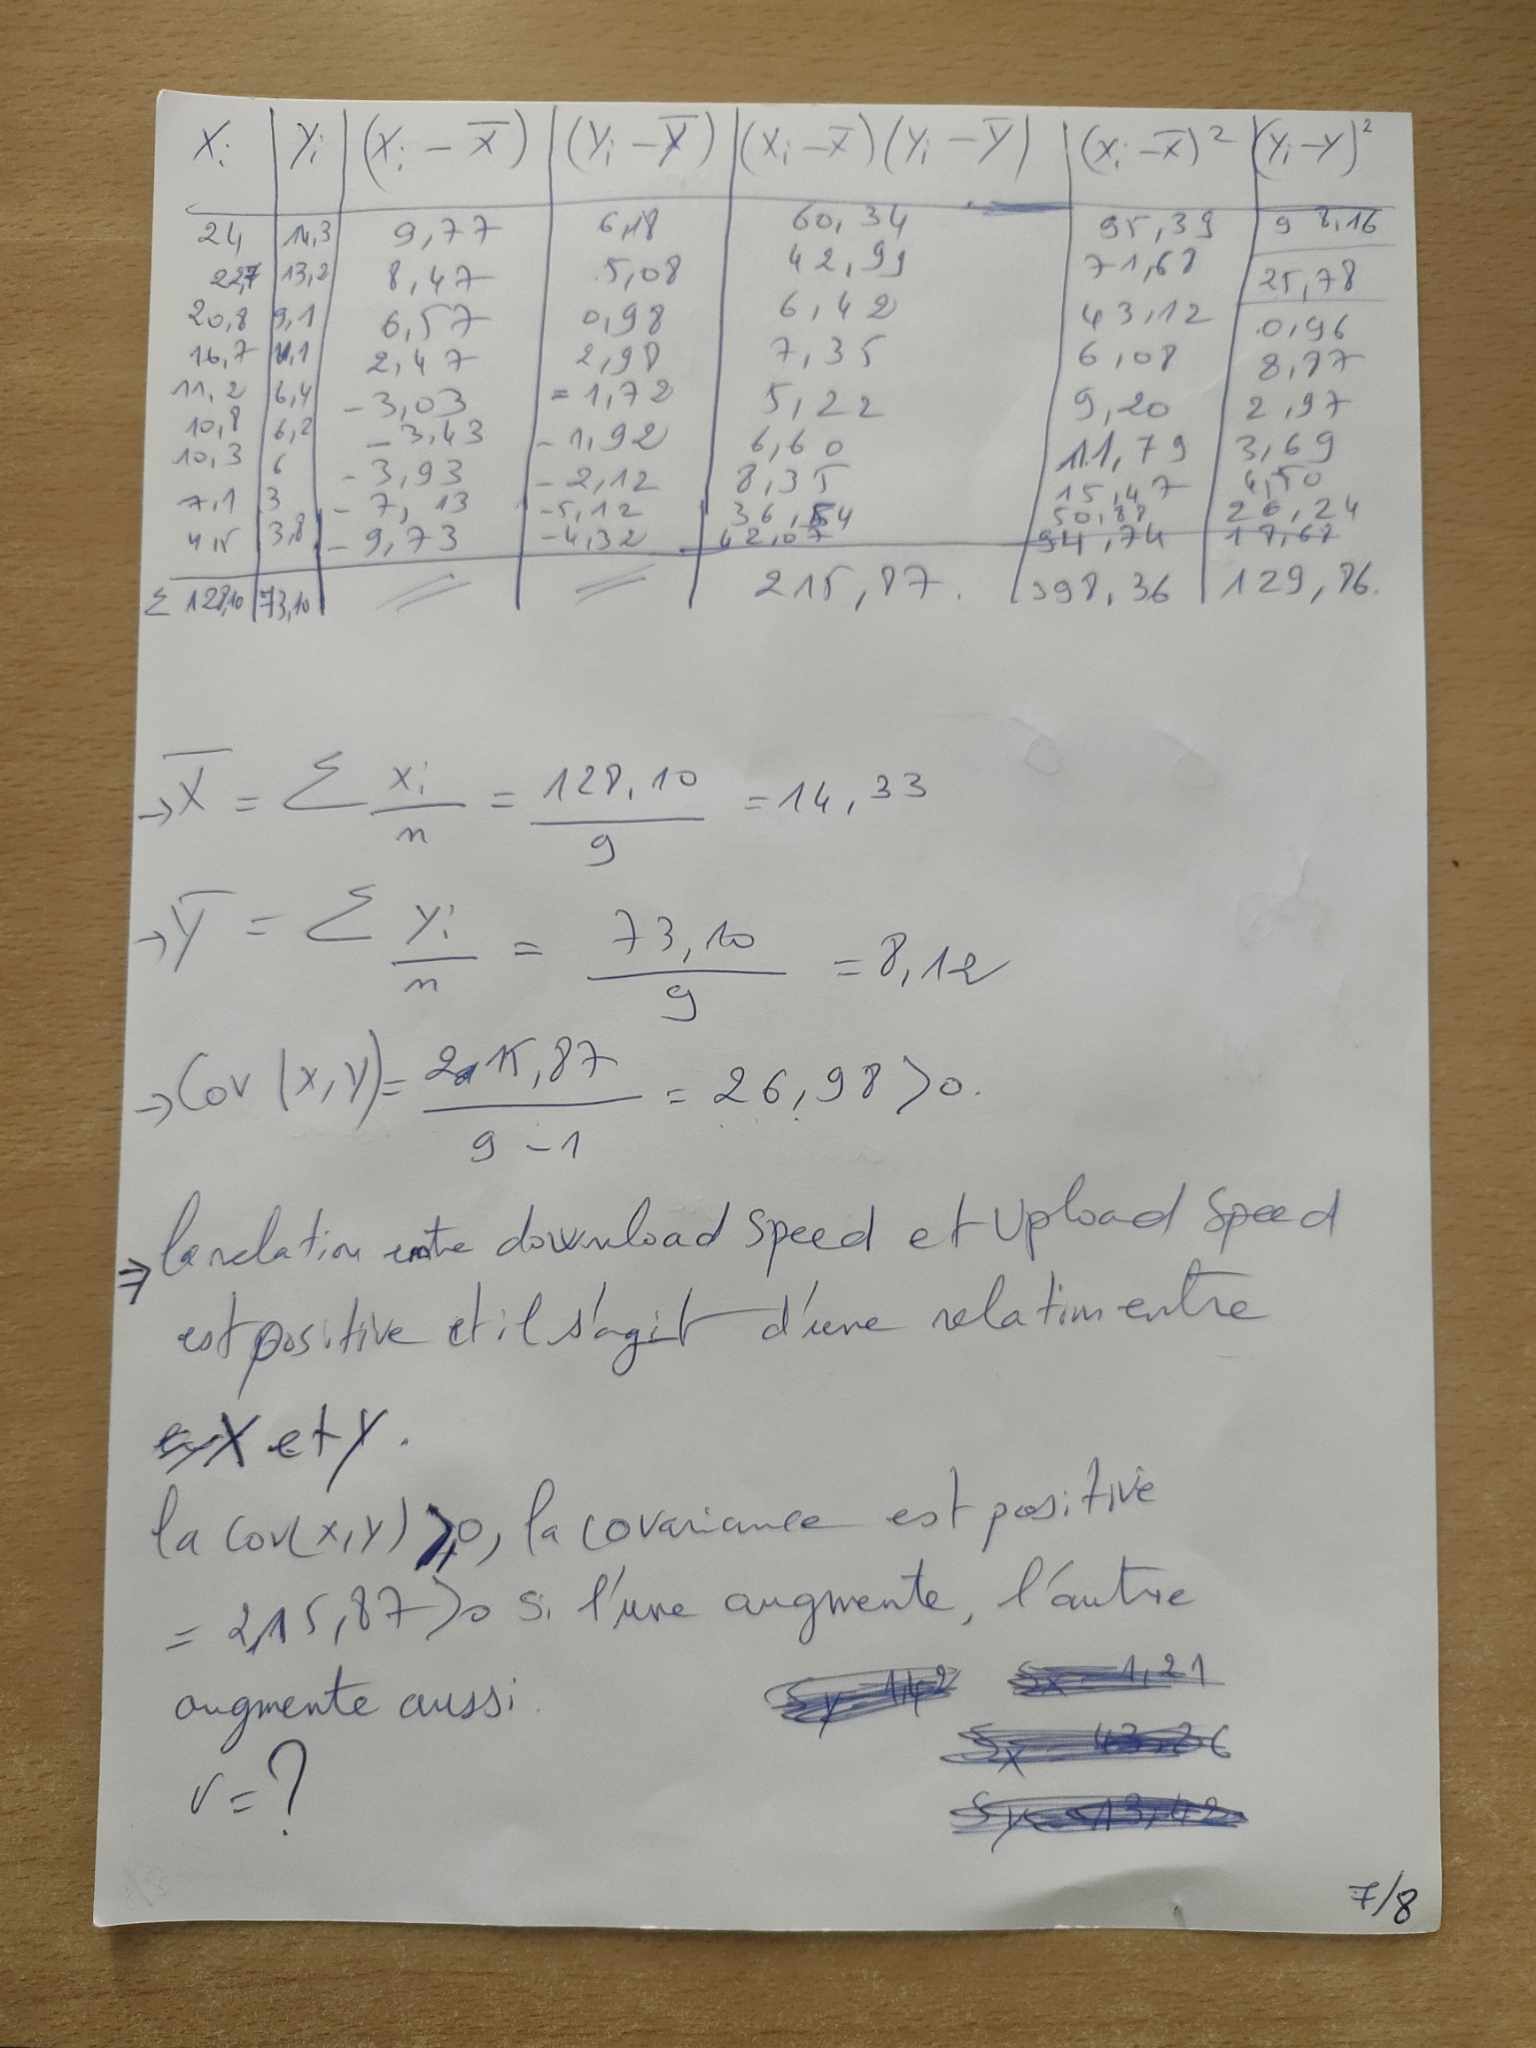 Xi | Yi | (Xi - X̅) | (Yi - Y̅) | (Xi - X̅)(Yi - Y̅) | (Xi - X̅)² | (Yi - Y)²
24 | 14,3 | 9,77 | 6,18 | 60,34 | 95,39 | 98,16
22,7 | 13,2 | 8,47 | 5,08 | 42,99 | 71,68 | 25,78
20,8 | 9,1 | 6,57 | 0,98 | 6,42 | 43,12 | 0,96
16,7 | 11,1 | 2,47 | 2,98 | 7,35 | 6,08 | 8,87
11,2 | 6,4 | -3,03 | -1,72 | 5,22 | 9,20 | 2,97
10,8 | 6,2 | -3,43 | -1,92 | 6,60 | 11,79 | 3,69
10,3 | 6 | -3,93 | -2,12 | 8,35 | 15,47 | 4,50
7,1 | 3 | -7,13 | -5,12 | 36,54 | 50,88 | 26,24
4,5 | 3,8 | -9,73 | -4,32 | 42,07 | 94,74 | 18,67
Σ 128,10 | 73,10 | | | 215,87. | 398,36 | 129,86.
→ X̅ = Σ xi/n = 128,10/9 = 14,33
→ Y̅ = Σ yi/n = 73,10/9 = 8,12
→ Cov (X,Y) = 215,87/9-1 = 26,98 > 0.
⇒ la relation entre download Speed et Upload Speed
est positive et il s'agit d'une relation entre
X et Y.
la cov(x,y) > 0, la covariance est positive
= 215,87 > 0 si l'une augmente, l'autre
augmente aussi.
Sy 1,42 Sx 1,21
Sx 43,26
Sy 13,42
r = ?
7/8